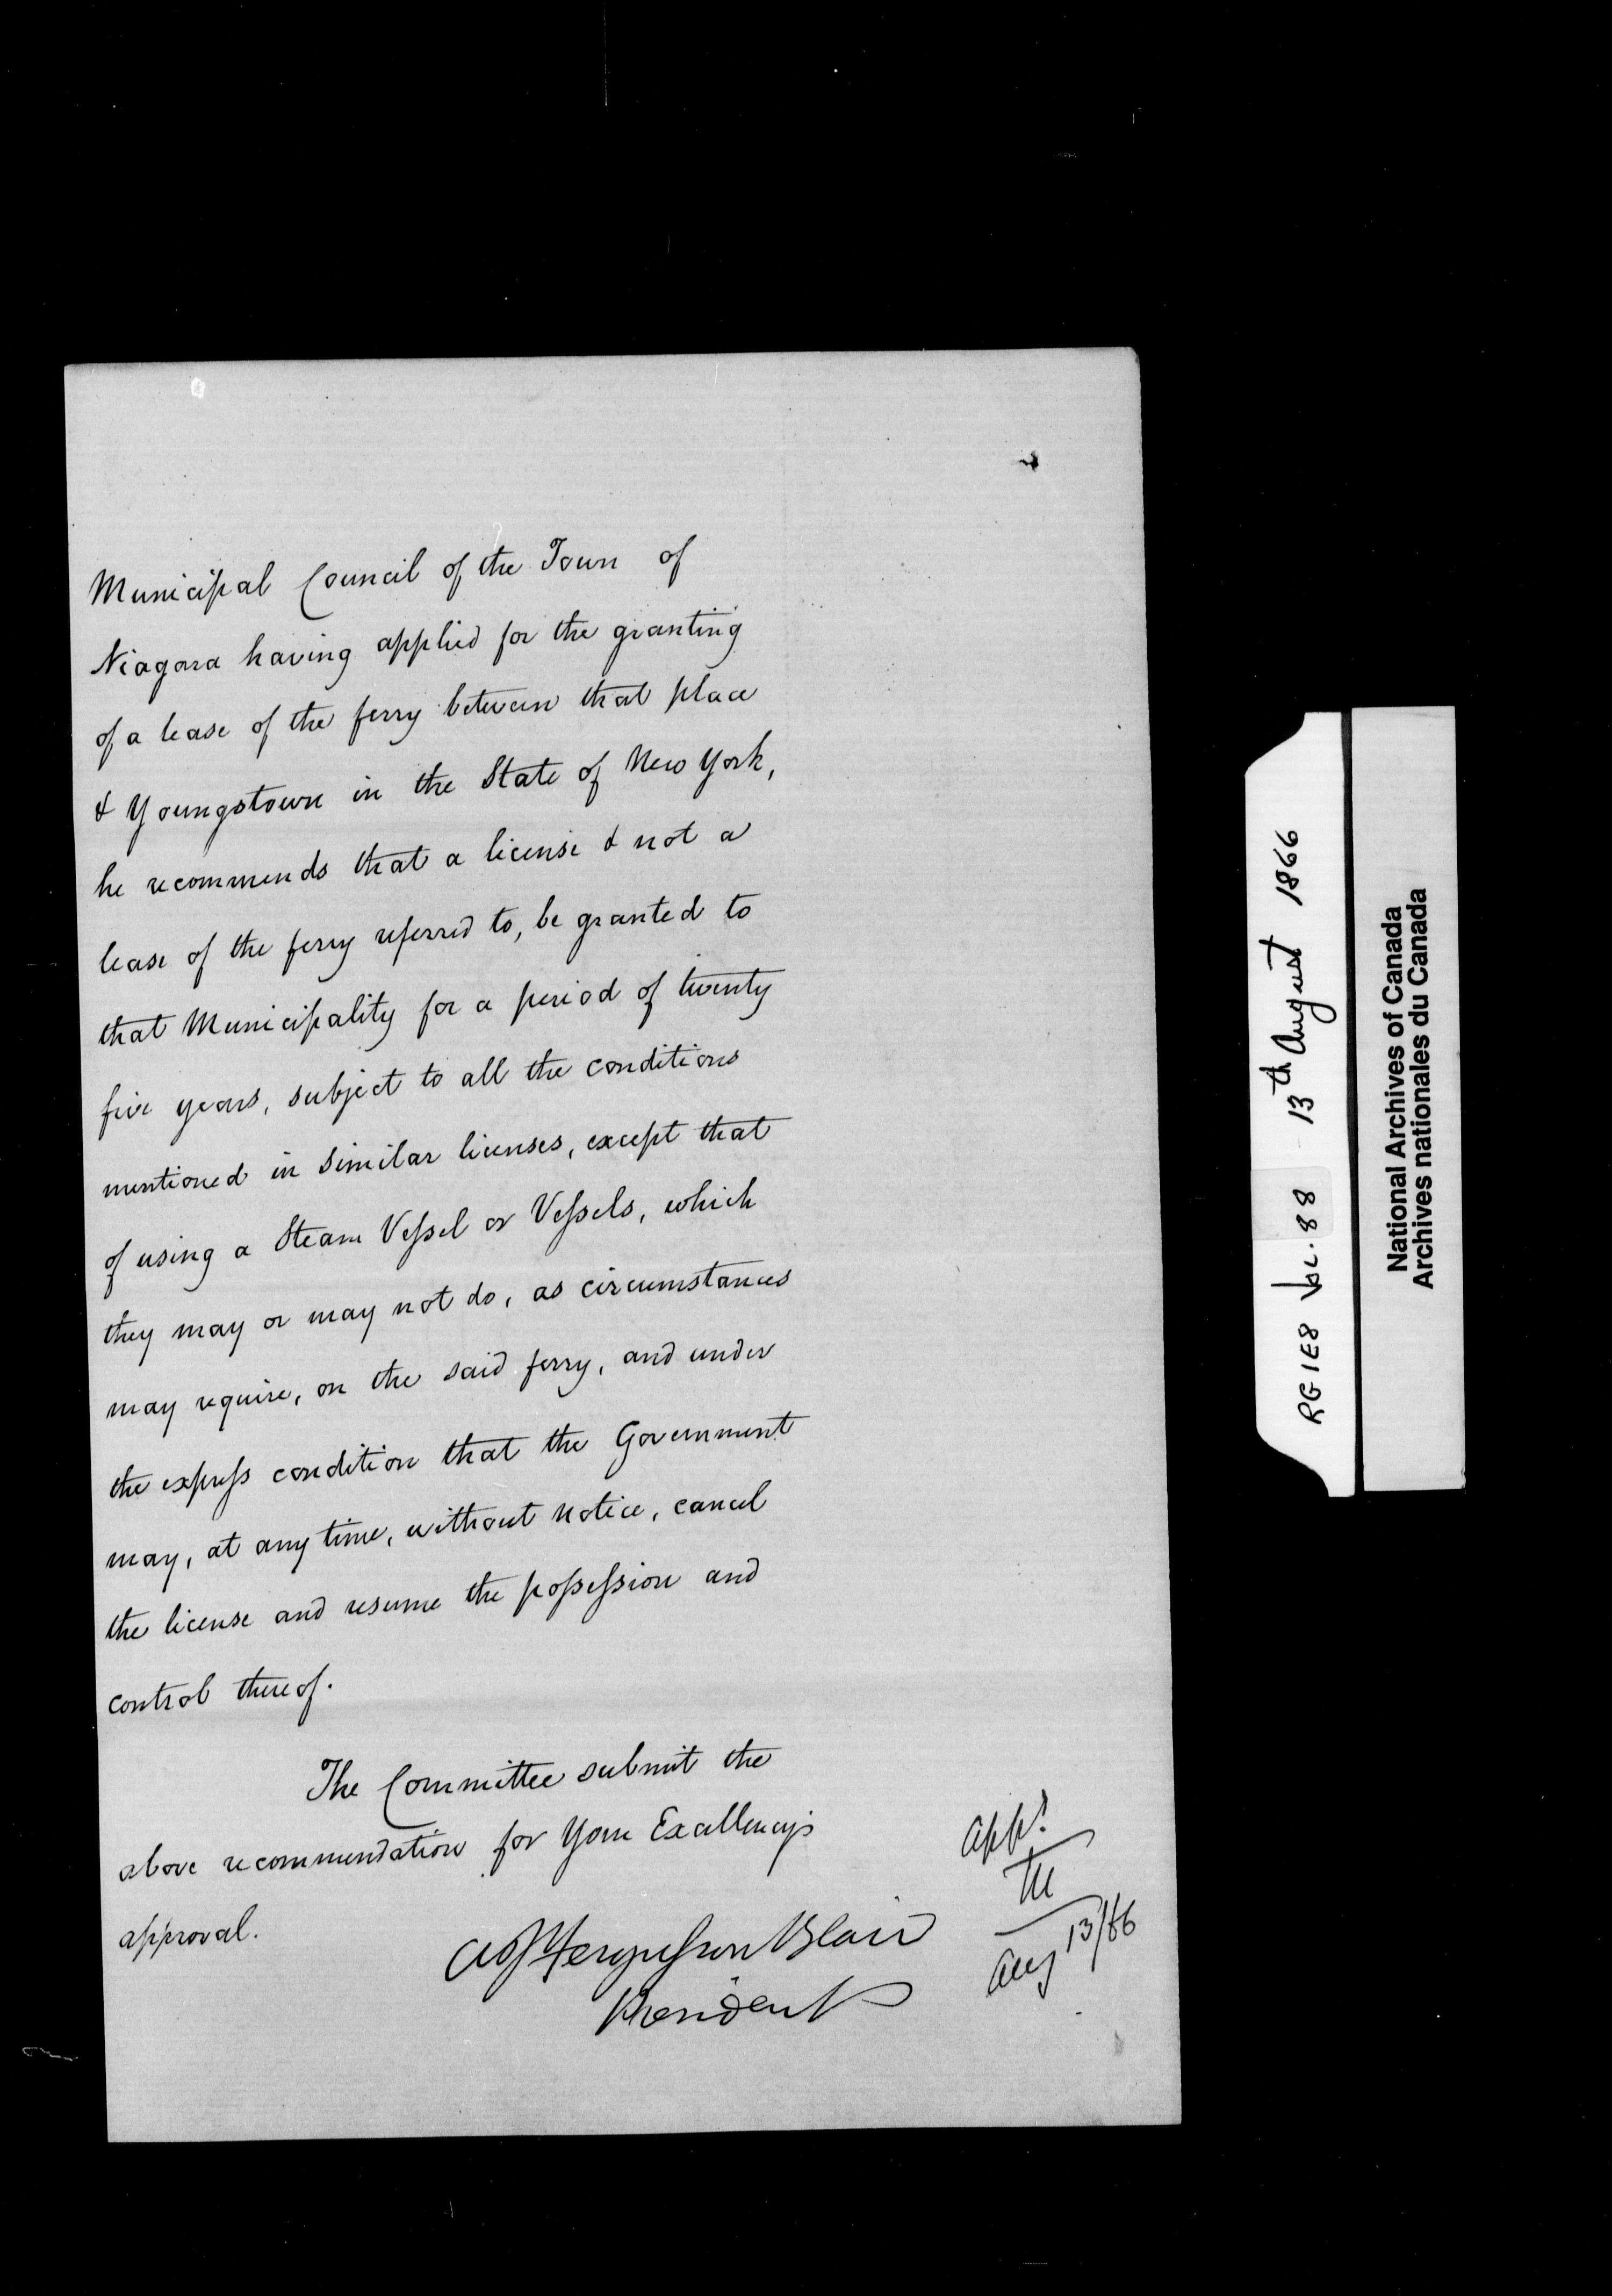 Municipal Council of the Town of
Niagara having applied for the granting
of a lease of the ferry between that place
& Youngstown in the State of New York,
he recommends that a license & not a
lease of the ferry referred to, be granted to
that Municipality for a period of twenty
five years, subject to all the conditions
mentioned in similar licenses, except that
of using a Steam Vessel or Vessels, which
they may or may not do, as circumstances
may require, on the said ferry, and under
the express condition that the Government
may, at any time, without notice, cancel
the license and resume the possession and
control thereof.
The Committee submit the
above recommendation for Your Excellency's
approval.
A J Fergusson Blair
President
Appd
M
Aug 13/66
RG 1E8 Vol. 88 13th August 1866
National Archives of Canada
Archives nationales du Canada